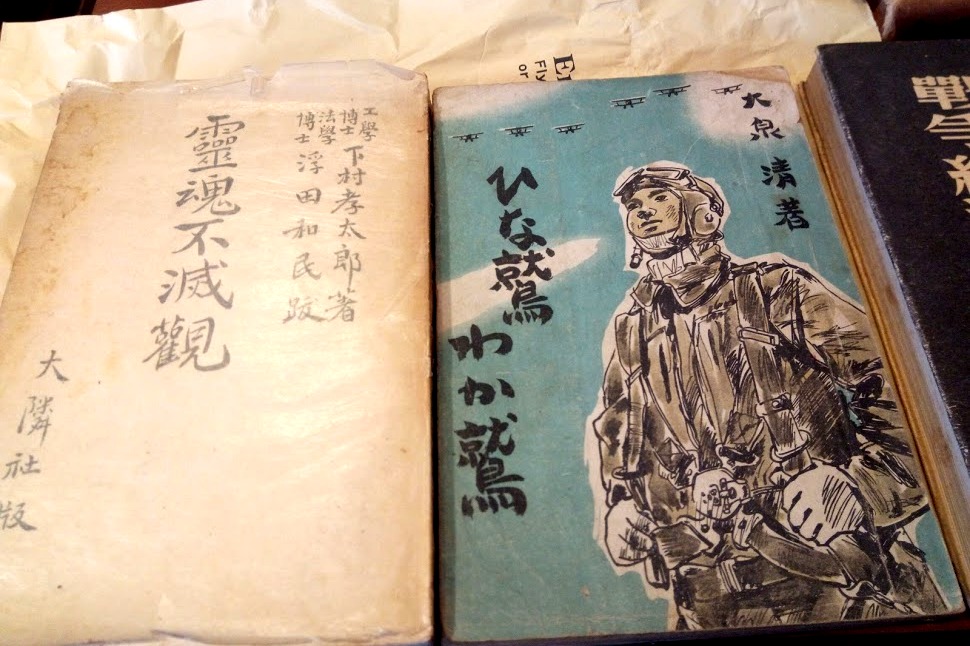 工學博士 下村孝太郎著
法學博士 浮田和民跋
靈魂不滅觀
大隣社版
大泉 清著
ひな鷲
わか鷲
戰
Fly
or